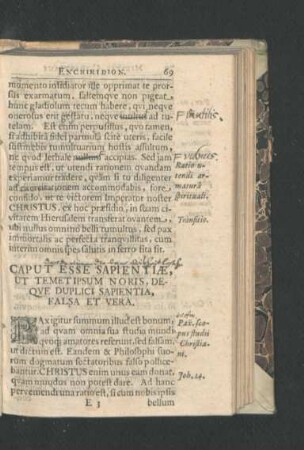 ENCHIRIDION. 69
momento insidiator ille opprimat te pror-
sus exarmatum, saltemque non pigeat,
hunc gladiolum tecum habere, qui neque
onerosus erit gestatu, neque inutilis ad tu-
telam. Est enim perpusillus, quo tamen,
si adhibita fidei parmula scite uteris, facile
sustinebis tumultuarium hostis assultum,
ne quod lethale vulnus accipias. Sed jam
tempus est, ut utendi rationem quandam
experiamur tradere, quam si tu diligenter
ad exercitationem accommodabis, fore,
confido, ut te victorem Imperator noster
CHRISTUS, ex hoc præsidio, in suam ci-
vitatem Hierusalem transferat ovantem,
ubi nullus omnino belli tumultus, sed pax
immortalis ac perfecta tranquillitas, cum
interim omnis spes salutis in ferro sita sit.
CAPUT ESSE SAPIENTIÆ,
UT TEMETIPSUM NORIS, DE-
QUE DUPLICI SAPIENTIA,
FALSA ET VERA.
PAx igitur summum illud est bonum,
ad quam omnia sua studia mundi
quoque amatores referunt, sed falsam,
ut dictum est. Eandem & Philosophi suo-
rum dogmatum sectatoribus falso pollice-
bantur. CHRISTUS enim unus eam donat,
quam mundus non potest dare. Ad hanc
perveniendi una ratio est, si cum nobis ipsis
E 3 bellum
Ratio u-
tendi ar-
matura
spirituali.
Pax, sco-
pus studii
Christia-
ni.
Joh. 14.